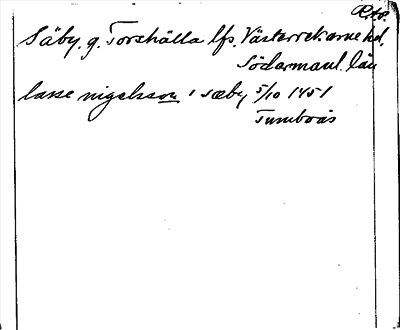 RAp.
Säby. g. Torshälla lfs. Västerrekarne hd.
Södermanl. län
lasse nigelsson i sæby 5/10 1451
Tumboås